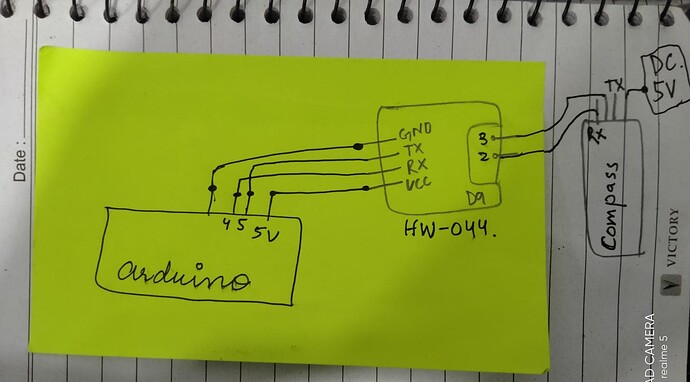 Date :
GND
TX
RX
VCC
3
2
D9
HW-044.
4 5 5V
arduino
TX
RX
DC.
5V
Compass
VICTORY
AD CAMERA
realme 5